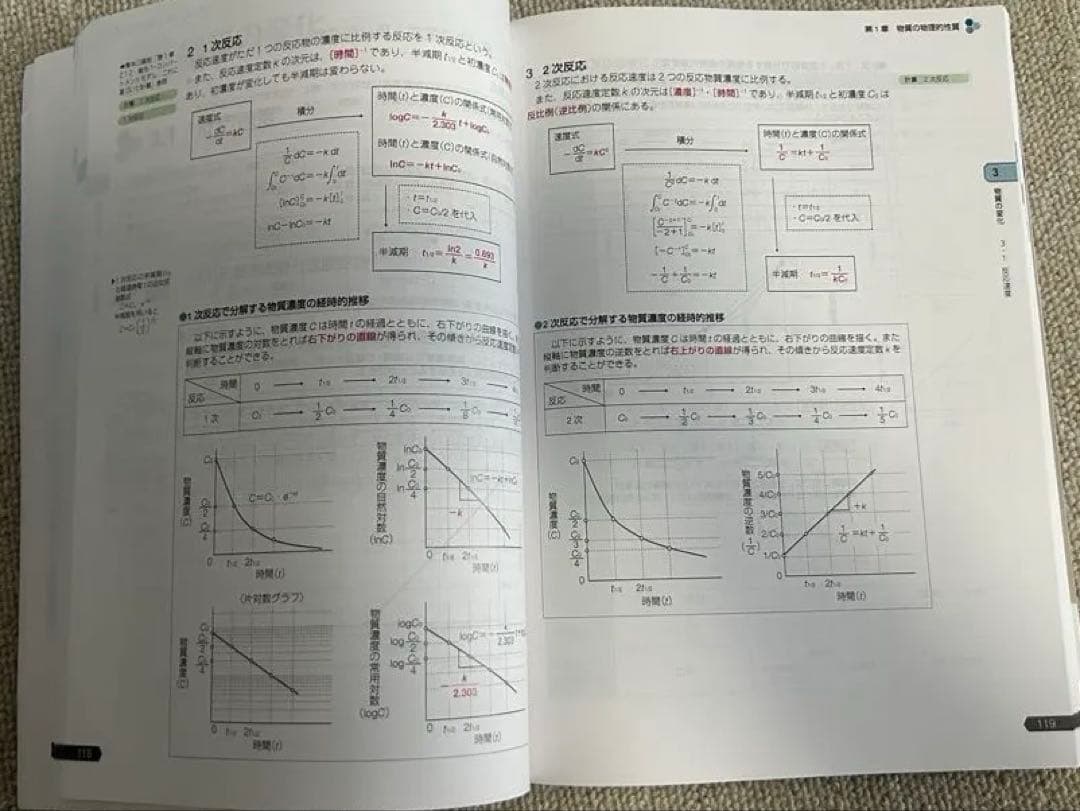 2 1次反応
反応速度がただ1つの反応物の濃度に比例する反応を1次反応という。
また、反応速度定数kの次元は、[時間]⁻¹であり、半減期t1/2と初濃度C₀は
あり、初濃度が変化しても半減期は変わらない。
速度式
-dC/dt=kC
積分
1/C dC=-k dt
[lnC]=-k[t]
lnC-lnC₀=-kt
時間(t)と濃度(C)の関係式
logC=-k/2.303 t+logC₀
時間(t)と濃度(C)の関係式(自然
lnC=-kt+lnC₀
・t=t1/2
・C=C₀/2を代入
半減期 t1/2=ln2/k=0.693/k
●1次反応で分解する物質濃度の経時的推移
以下に示すように、物質濃度Cは時間tの経過とともに、右下がりの曲線を描く。
縦軸に物質濃度の対数をとれば右下がりの直線が得られ、その傾きから反応速度定数
判断することができる。
時間 0 → t1/2 → 2t1/2 → 3t1/2
反応
1次 C₀ → 1/2 C₀ → 1/4 C₀ → 1/8 C₀
物質濃度(C)
C₀
C₀/2
C₀/4
C=C₀・e⁻ᵏᵗ
0 t1/2 2t1/2
時間(t)
物質濃度の自然対数(lnC)
lnC₀
ln C₀/2
ln C₀/4
lnC=-kt+lnC₀
-k
0 t1/2 2t1/2
時間(t)
(片対数グラフ)
物質濃度(C)
C₀
C₀/2
C₀/4
0 t1/2 2t1/2
時間(t)
物質濃度の常用対数(logC)
logC₀
log C₀/2
log C₀/4
logC=-k/2.303
-k/2.303
0 t1/2 2t1/2
時間(t)
118
第1章 物質の物理的性質
3 2次反応
2次反応における反応速度は2つの反応物質濃度に比例する。
また、反応速度定数kの次元は[濃度]⁻¹・[時間]⁻¹であり、半減期t1/2と初濃度C₀は
反比例(逆比例)の関係にある。
計算:2次反応
速度式
-dC/dt=kC²
積分
1/C² dC=-k dt
[-C⁻¹]=-kt
-1/C+1/C₀=-kt
時間(t)と濃度(C)の関係式
1/C=kt+1/C₀
・t=t1/2
・C=C₀/2を代入
半減期 t1/2=1/kC₀
●2次反応で分解する物質濃度の経時的推移
以下に示すように、物質濃度Cは時間tの経過とともに、右下がりの曲線を描く。また
縦軸に物質濃度の逆数をとれば右上がりの直線が得られ、その傾きから反応速度定数kを
判断することができる。
時間 0 → t1/2 → 2t1/2 → 3t1/2 → 4t1/2
反応
2次 C₀ → 1/2 C₀ → 1/3 C₀ → 1/4 C₀ → 1/5 C₀
物質濃度(C)
C₀
C₀/2
C₀/3
C₀/4
0 t1/2 2t1/2
時間(t)
物質濃度の逆数(1/C)
5/C₀
4/C₀
3/C₀
2/C₀
1/C₀
+k
1/C=kt+1/C₀
0 t1/2 2t1/2
時間(t)
3
物質の変化
3・1 反応速度
119